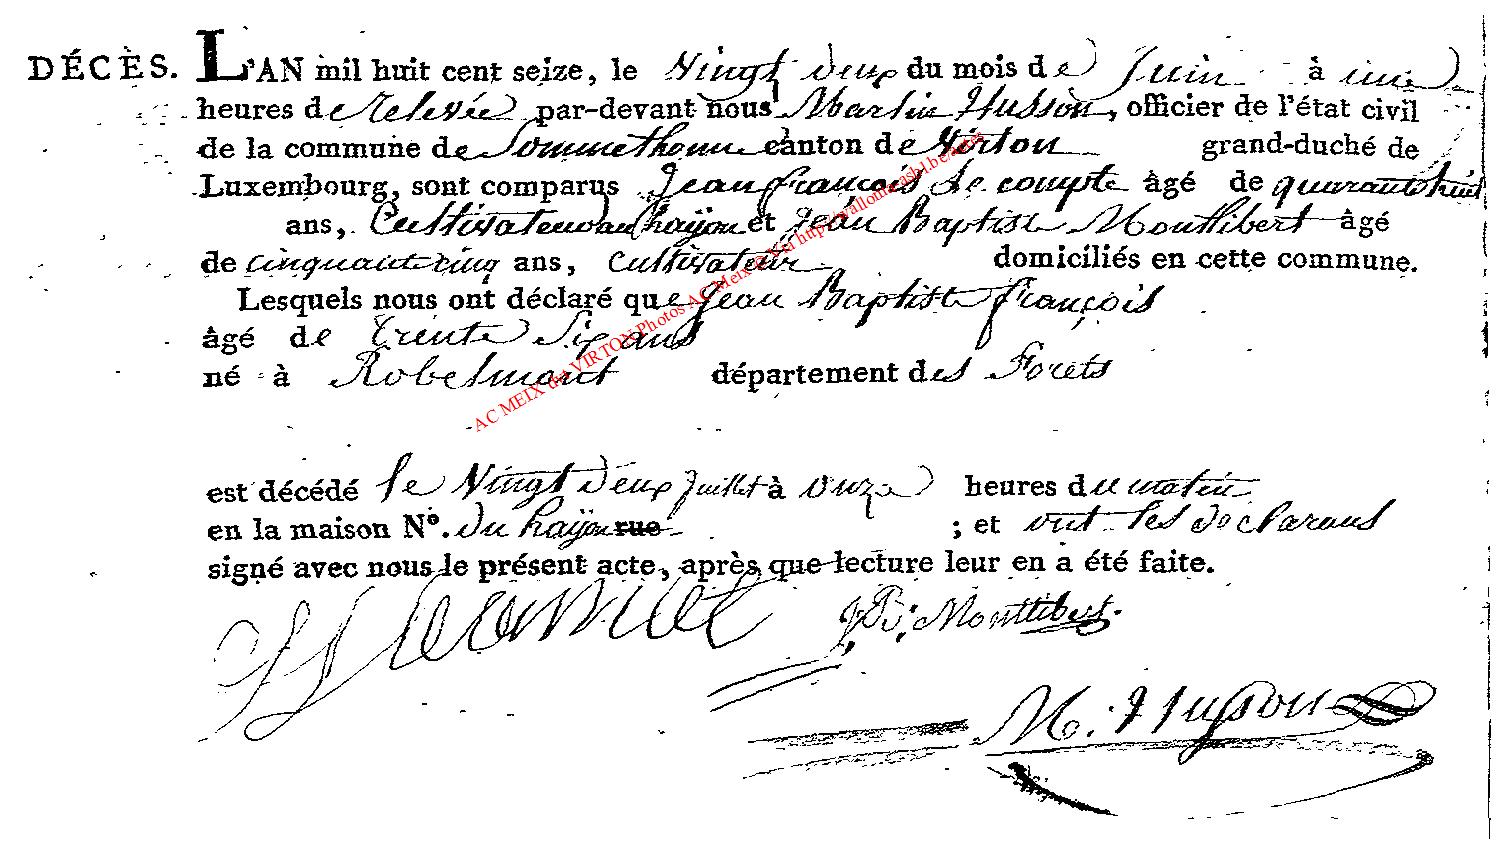 DÉCÈS. L'AN mil huit cent seize, le Vingt deux du mois de Juin à une
heures de relevée par-devant nous Martin Husson, officier de l'état civil
de la commune de Sommethonne canton de Virton grand-duché de
Luxembourg, sont comparus Jean françois Le compte âgé de quarante huit
ans, Cultivateur au hayon et Jean Baptiste Monttibert âgé
de cinquante cinq ans, Cultivateur domiciliés en cette commune.
Lesquels nous ont déclaré que Jean Baptiste françois
âgé de trente Six ans
né à Robelmont département des Forets
AC MEIX dvt VIRTON Photos AC Meix
est décédé le Vingt deux juillet à onze heures du matin
en la maison N°. du hayon rue ; et ont les declarans
signé avec nous le présent acte, après que lecture leur en a été faite.
J B Monttibert
M. Husson